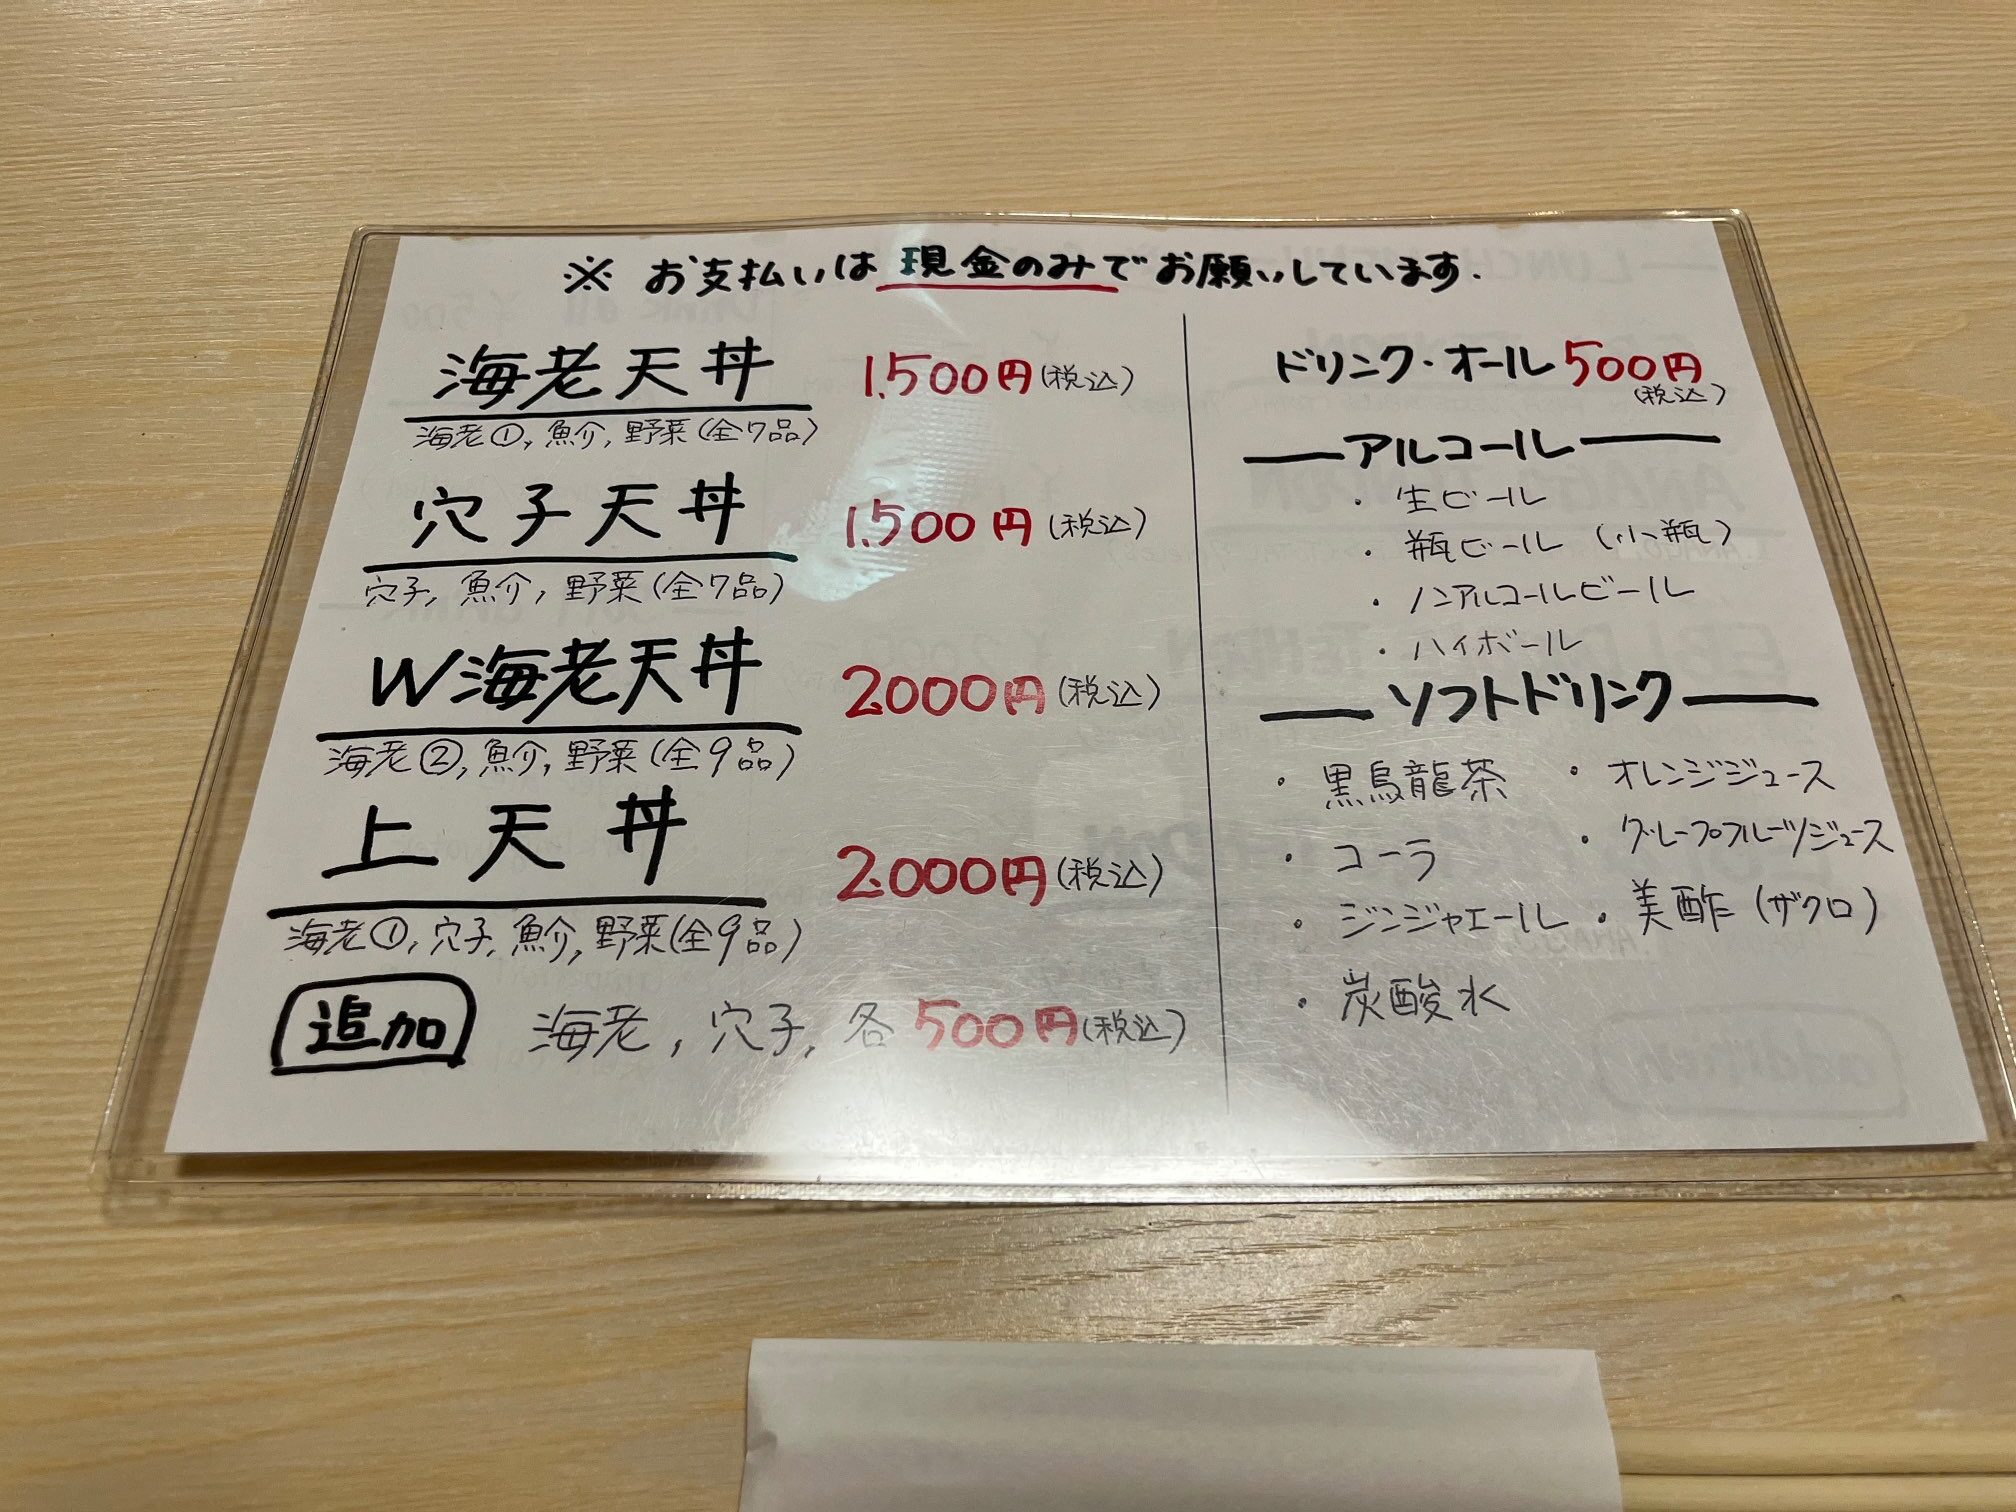 ※ お支払いは 現金のみでお願いしています.
海老天丼 1,500円(税込)
海老①, 魚介, 野菜(全7品)
穴子天丼 1,500円(税込)
穴子, 魚介, 野菜(全7品)
W海老天丼 2,000円(税込)
海老②, 魚介, 野菜(全9品)
上天丼 2,000円(税込)
海老①, 穴子, 魚介, 野菜(全9品)
追加 海老, 穴子, 各500円(税込)
ドリンク・オール500円
(税込)
アルコール
・生ビール
・瓶ビール (小瓶)
・ノンアルコールビール
・ハイボール
ソフトドリンク
・黒烏龍茶
・コーラ
・ジンジャエール
・炭酸水
・オレンジジュース
・グレープフルーツジュース
・美酢 (ザクロ)